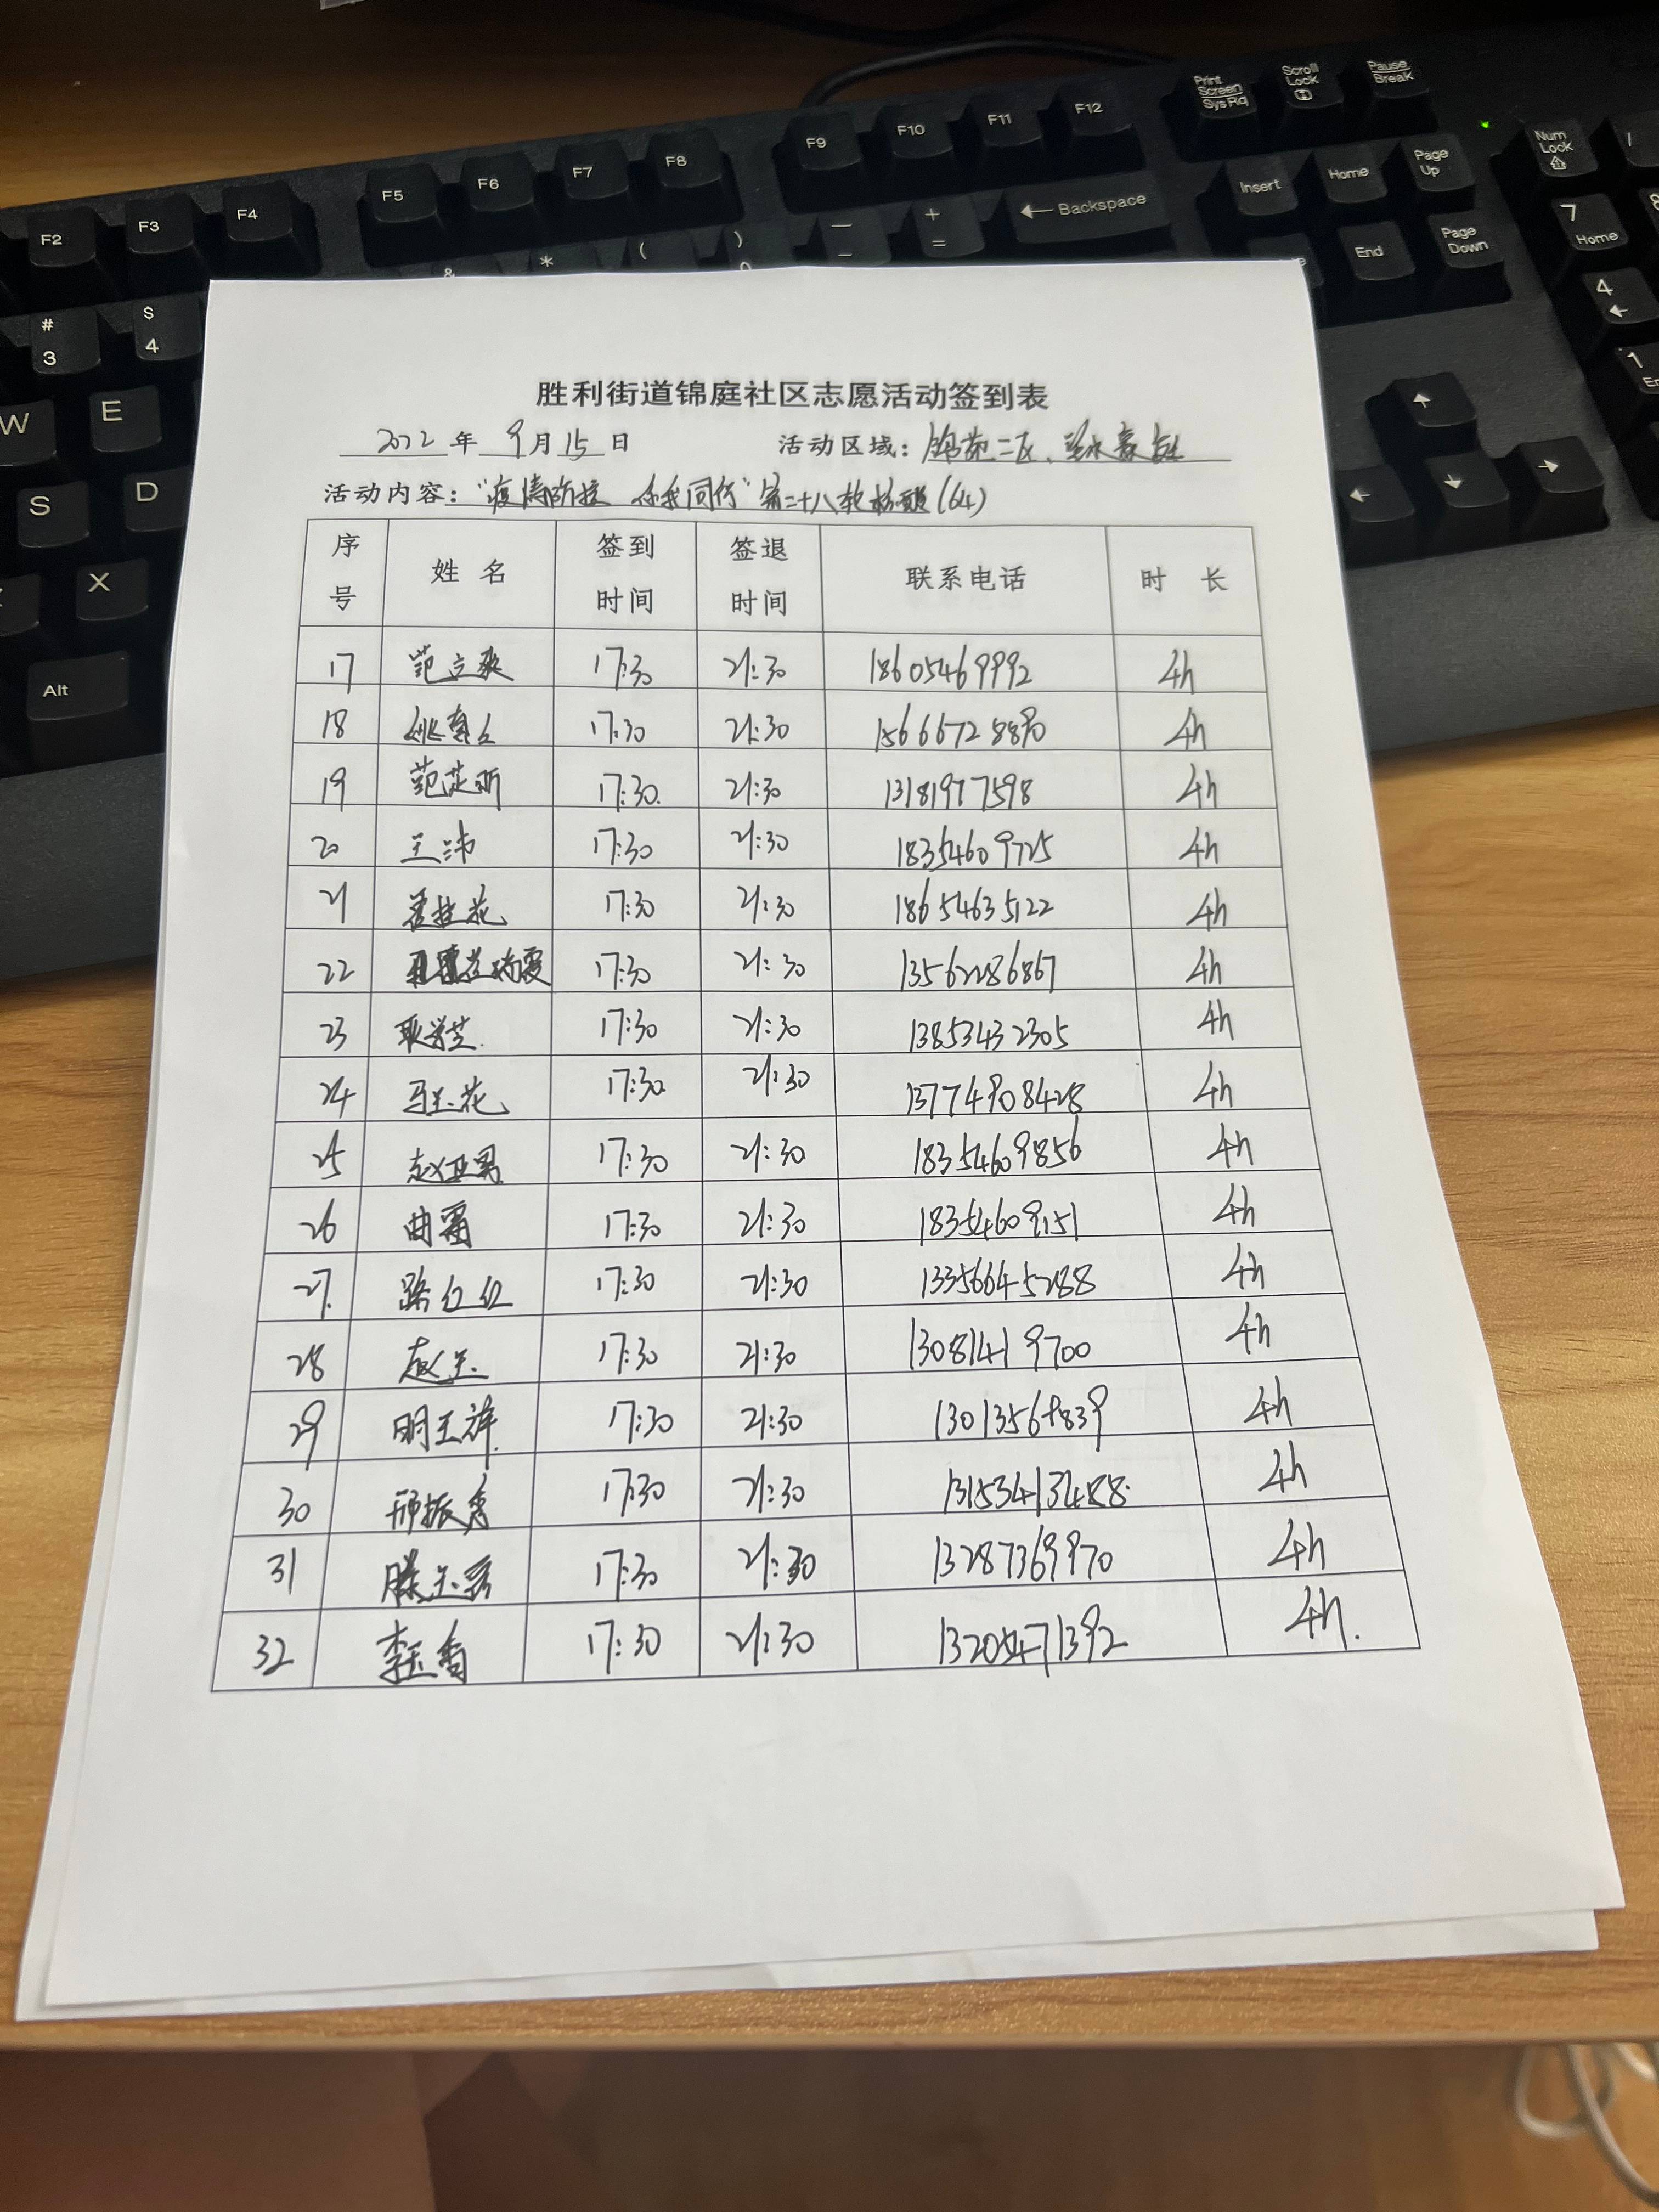 Print Screen SysRq
Scroll Lock
Pause Break
F2 F3 F4 F5 F6 F7 F8 F9 F10 F11 F12
Num Lock
Insert Home Page Up
← Backspace
End Page Down
7 Home
& * ( )
# 3 $ 4
4 ←
1
W E
S D
X
Alt
胜利街道锦庭社区志愿活动签到表
2022年 9月15日 活动区域: 锦苑二区、
活动内容:“疫情防控 你我同行”第二十八轮核酸(64)
序号 姓名 签到时间 签退时间 联系电话 时长
17 范立爽 17:30 21:30 18605469992 4h
18 17:30 21:30 15666728890 4h
19 17:30 21:30 13181977598 4h
20 王沛 17:30 21:30 18354609725 4h
21 17:30 21:30 18654635122 4h
22 17:30 21:30 13562286867 4h
23 耿学芝 17:30 21:30 13853432305 4h
24 马玉花 17:30 21:30 13774908428 4h
25 赵亚男 17:30 21:30 18354609856 4h
26 曲霄 17:30 21:30 18354609151 4h
27 路红红 17:30 21:30 13356645288 4h
28 赵玉 17:30 21:30 13081419700 4h
29 明玉祥 17:30 21:30 4h
30 邢振香 17:30 21:30 13153413488 4h
31 滕玉 17:30 21:30 13287369970 4h
32 李玉香 17:30 21:30 13205471392 4h.